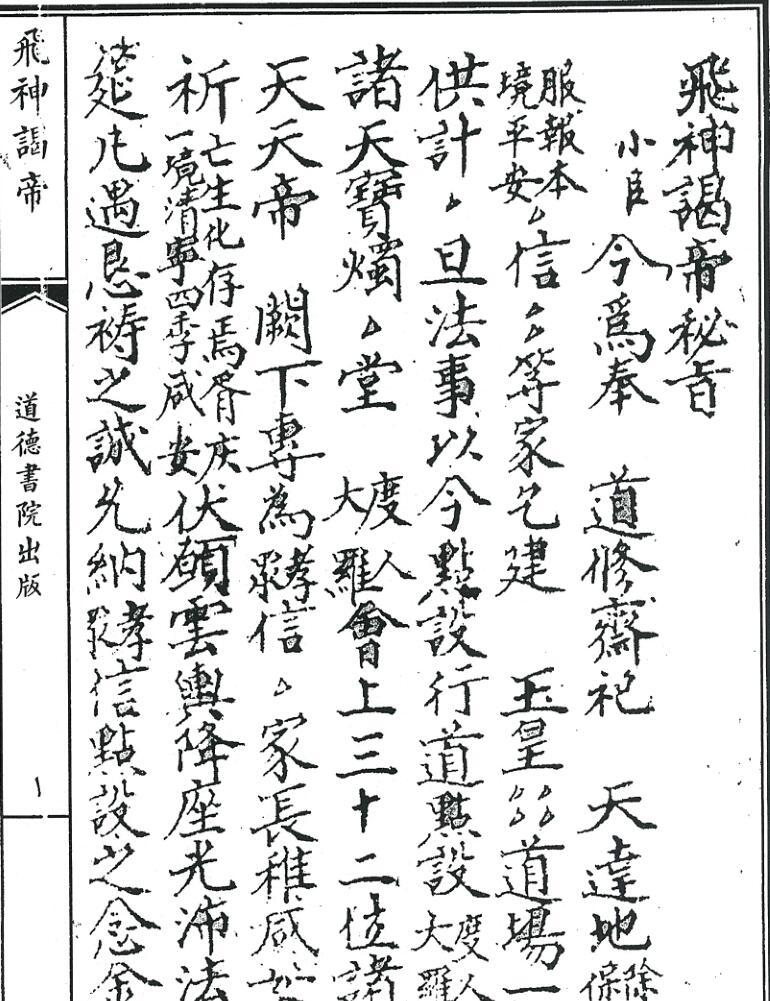 飛神謁帝秘旨
小臣 今爲奉 道修齋祀 天達地 除保
服報本境平安、信、、等家乞建 玉皇、、、、道場一
供計、旦法事以今點設行道點設 度人大羅
諸天寶燭、堂 度人大羅會上三十二位諸
天天帝 闕下專爲孝眾信、家長稚咸
祈 亡生化存焉胥慶一境清寧四季咸安 伏願雲輿降座光沛法
筵凡遇恳祷之誠允納孝眾信點設之念金
飛神謁帝
道德書院出版
一